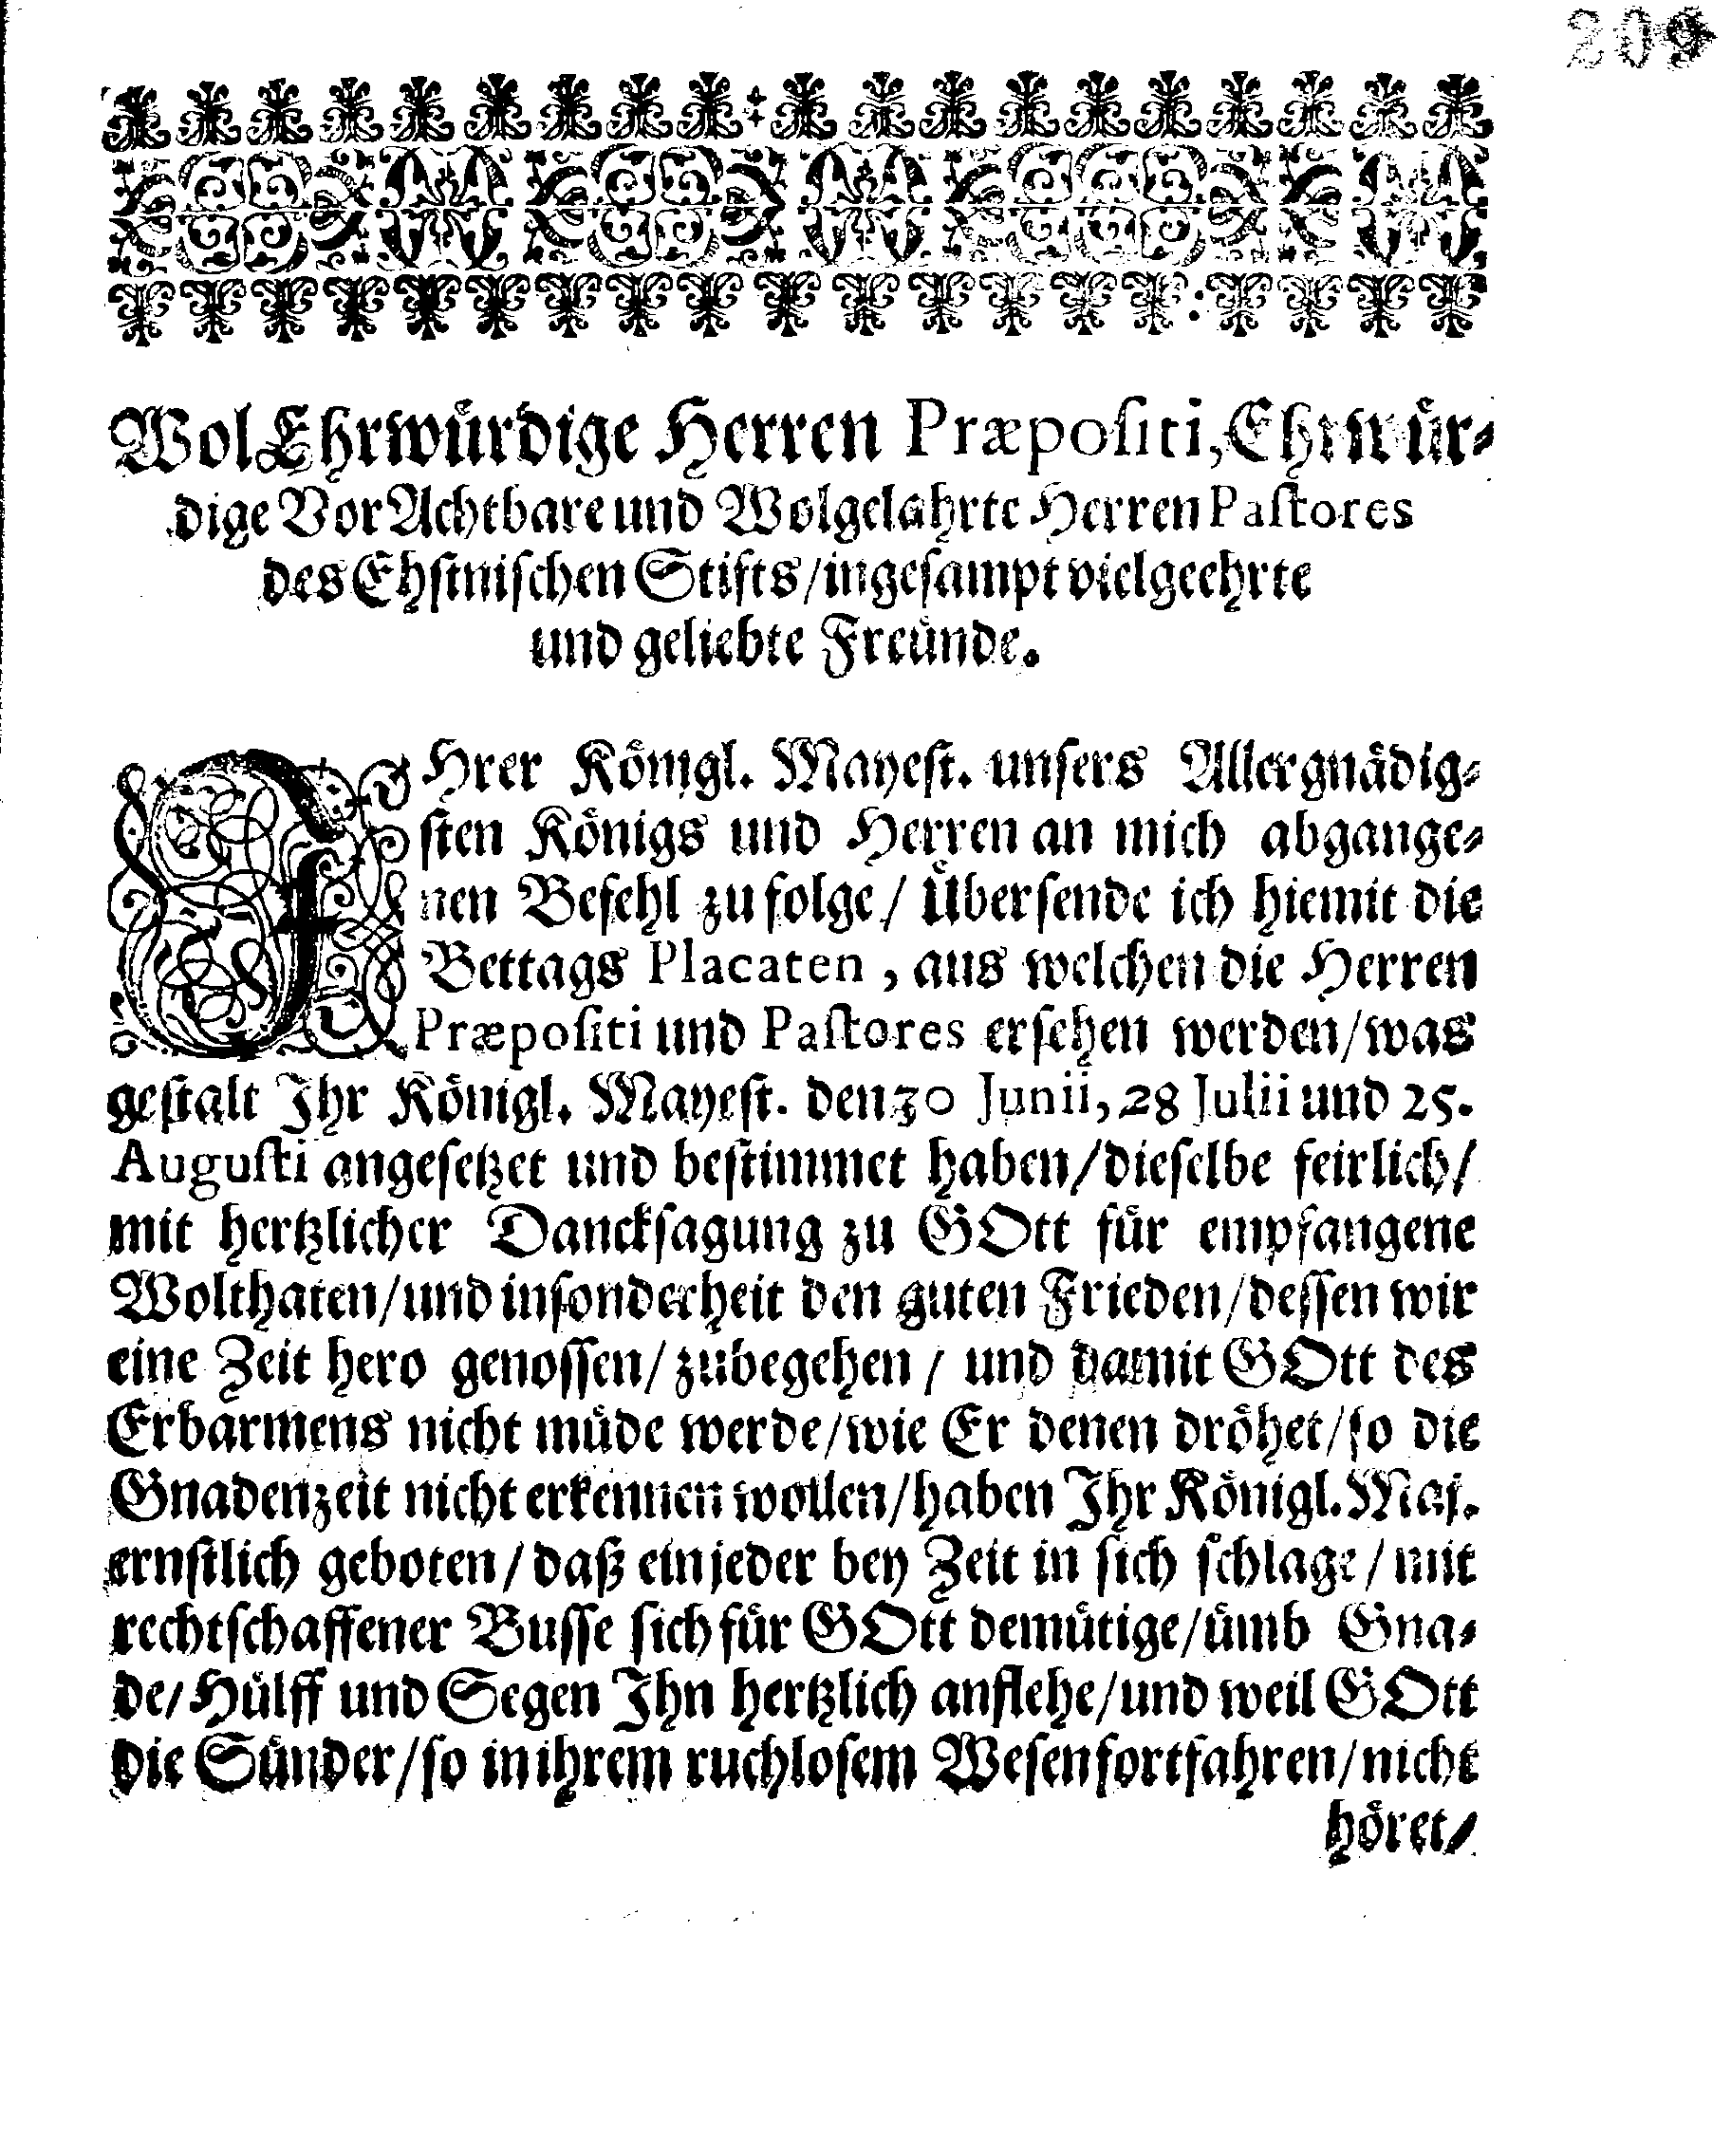 209
Wol Ehrwürdige Herren Præpositi, Ehrwür-
dige VorAchtbare und Wolgelahrte Herren Pastores
des Ehstnischen Stifts/ingesampt vielgeehrte
und geliebte Freünde.
IHrer Königl. Mayest. unsers Allergnädig-
sten Königs und Herren an mich abgange-
nen Befehl zu folge/ Übersende ich hiemit die
Bettags Placaten, aus welchen die Herren
Præpositi und Pastores ersehen werden/was
gestalt Ihr Königl. Mayest. den 30 Junii, 28 Julii und 25.
Augusti angesetzet und bestimmet haben/dieselbe feirlich/
mit hertzlicher Dancksagung zu GOtt für empfangene
Wolthaten/und insonderheit den guten Frieden/dessen wir
eine Zeit hero genossen/zubegehen/ und damit GOtt des
Erbarmens nicht müde werde/wie Er denen dröhet/so die
Gnadenzeit nicht erkennen wollen/haben Ihr Königl. Maj.
ernstlich geboten/daß ein jeder bey Zeit in sich schlage/mit
rechtschaffener Busse sich für GOtt demütige/ümb Gna-
de/Hülff und Segen Ihn hertzlich anflehe/und weil GOtt
die Sünder/so in ihrem ruchlosem Wesen fortfahren/nicht
höret/